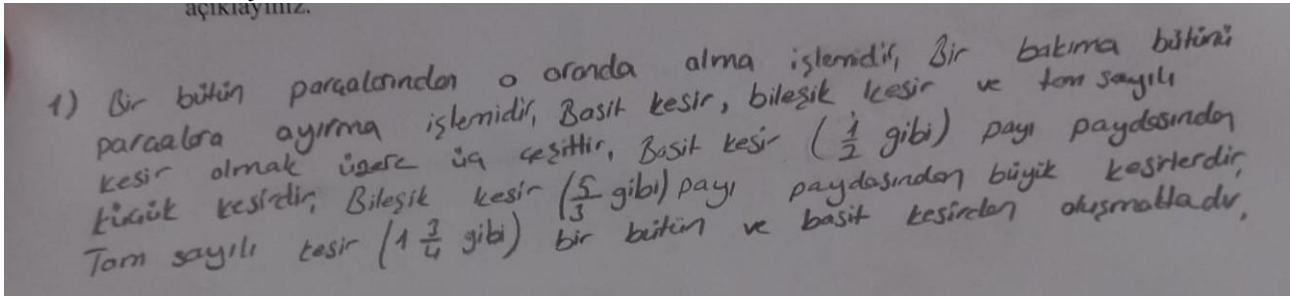 açıklayınız.
1) Bir bütün parçalarından o oranda alma işlemidir, Bir bakıma bütünü
parçalara ayırma işlemidir, Basit kesir, bileşik kesir ve tam sayılı
kesir olmak üzere üç çeşittir, Basit kesir (1/2 gibi) payı paydasından
küçük kesirdir, Bileşik kesir (5/3 gibi) payı paydasından büyük kesirlerdir,
Tam sayılı kesir (1 3/4 gibi) bir bütün ve basit kesirden oluşmaktadır,